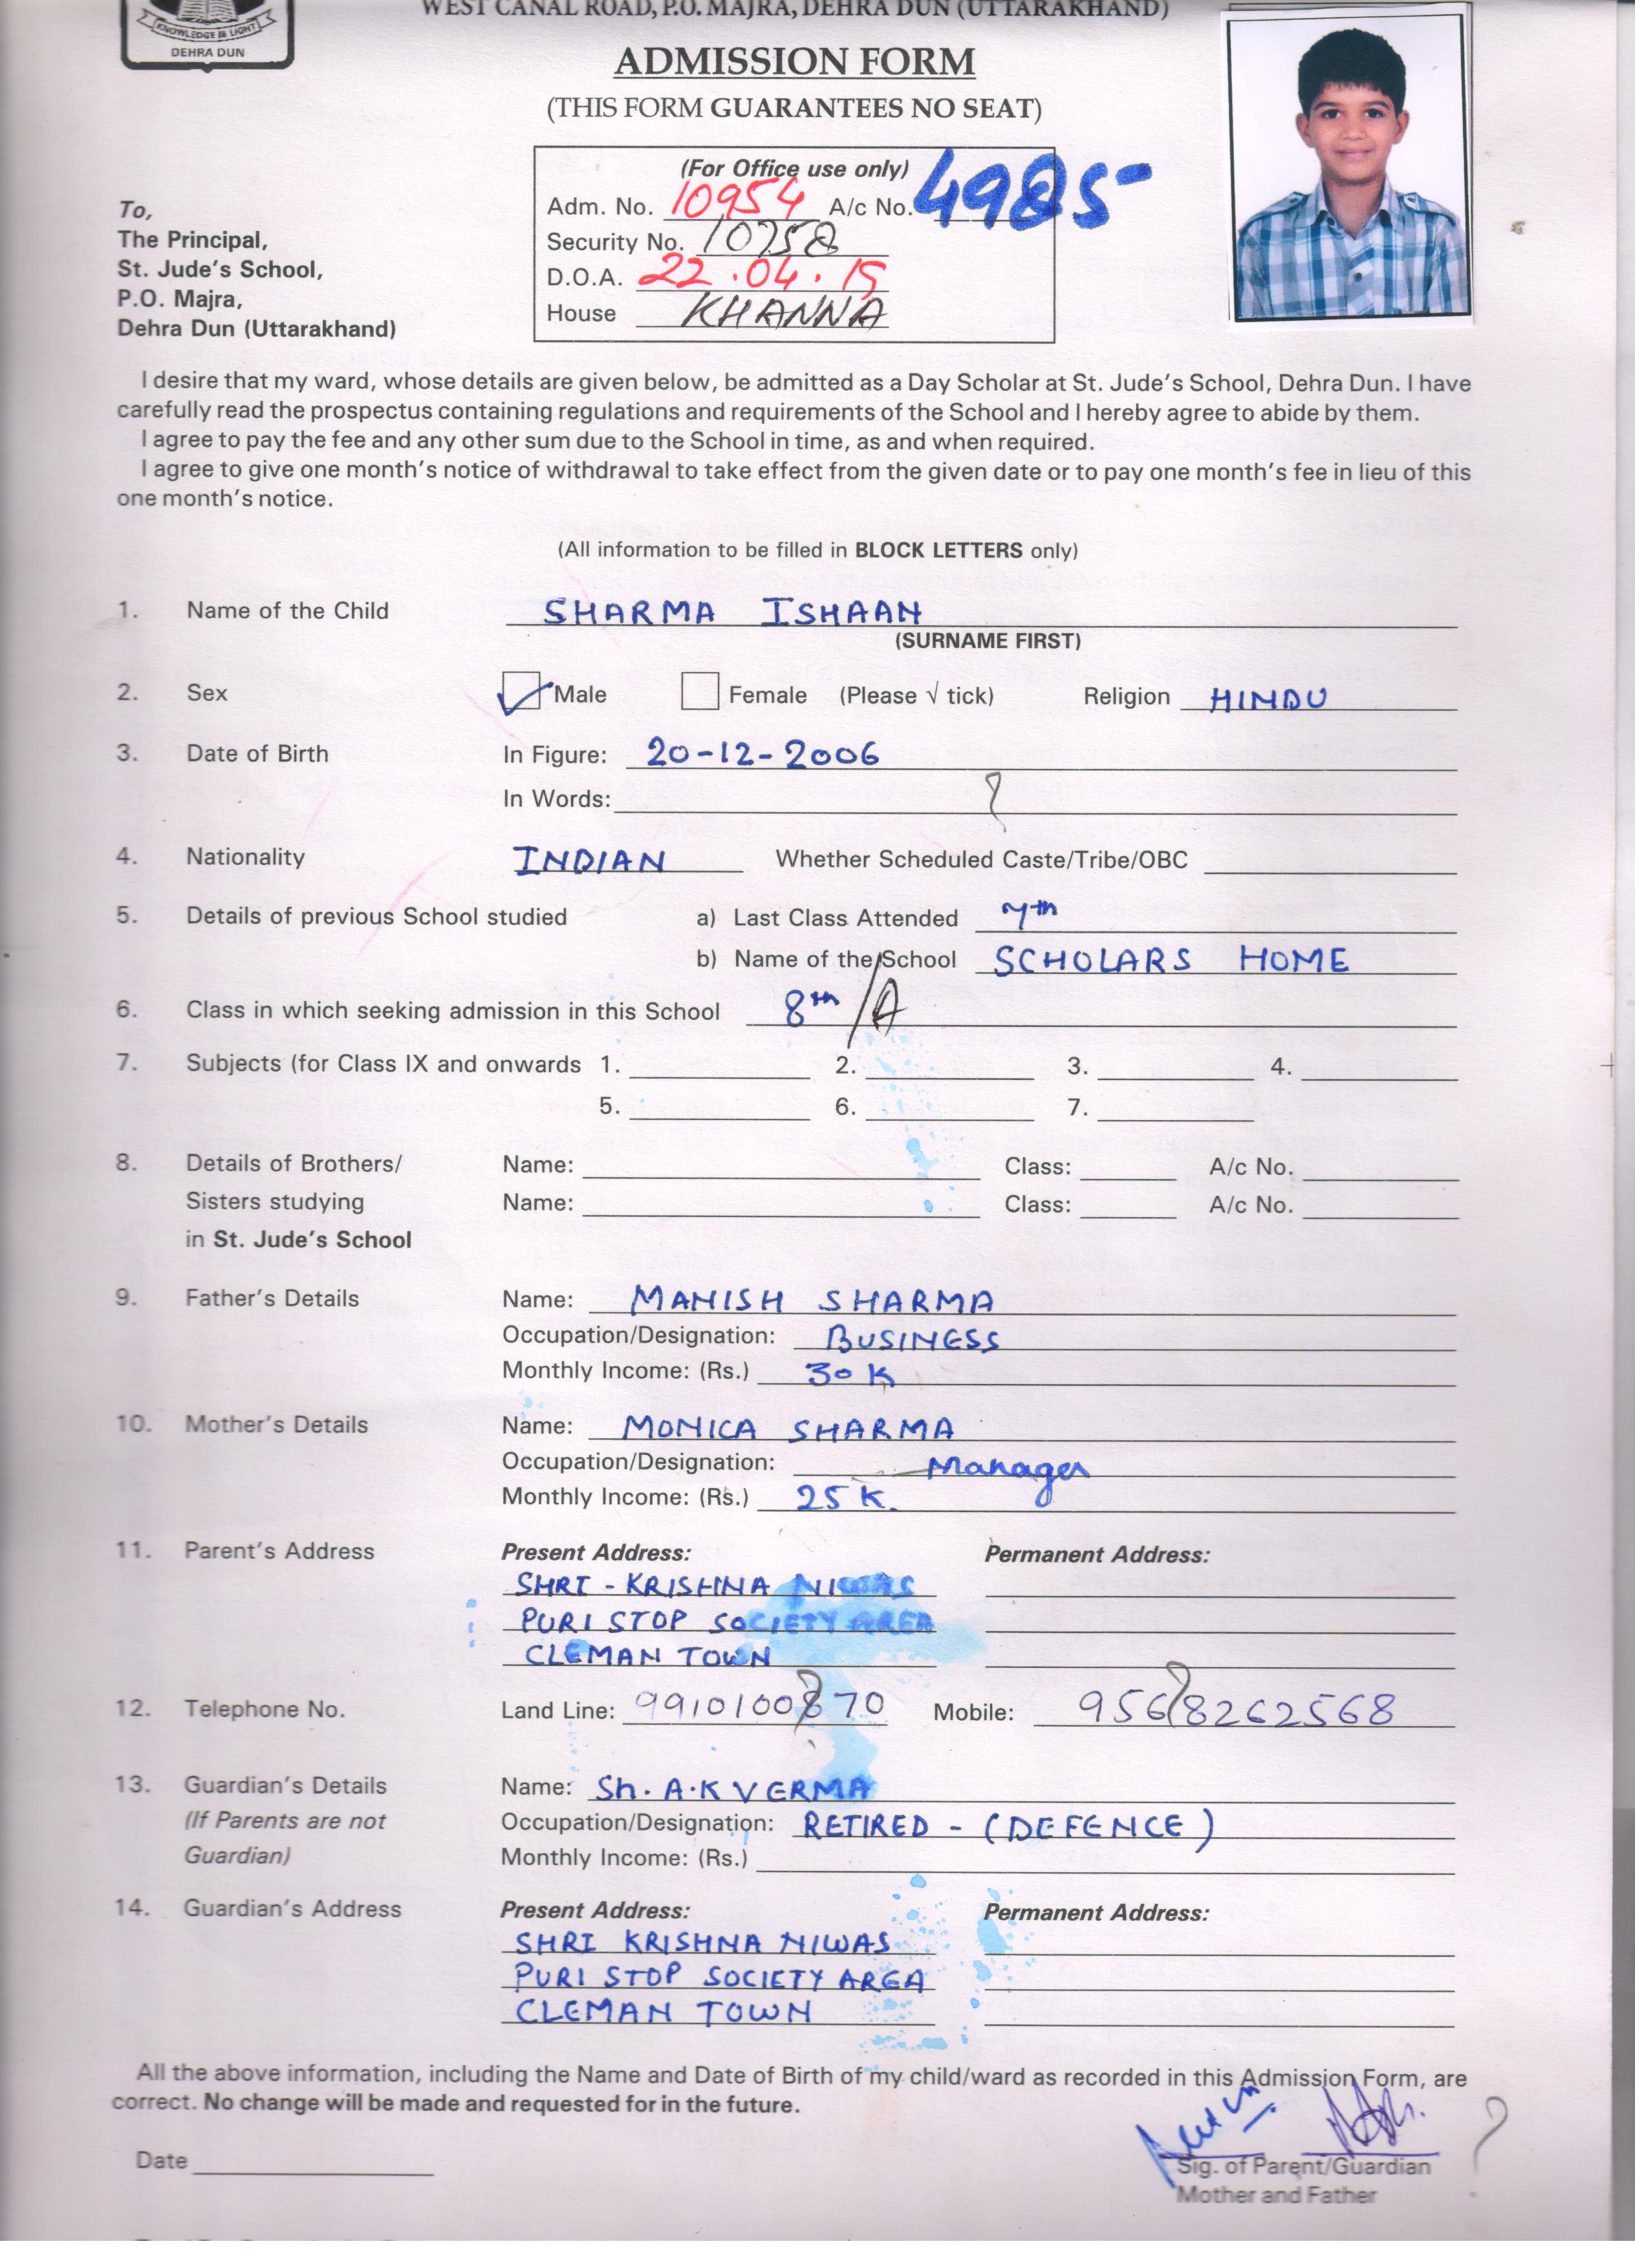 WEST CANAL ROAD, P.O. MAJRA, DEHRA DUN (UTTARAKHAND)
KNOWLEDGE IS LIGHT
DEHRA DUN
ADMISSION FORM
(THIS FORM GUARANTEES NO SEAT)
(For Office use only)
Adm. No. 10954 A/c No. 4985
Security No. 10758
D.O.A. 22.04.19
House KHANNA
To,
The Principal,
St. Jude's School,
P.O. Majra,
Dehra Dun (Uttarakhand)
I desire that my ward, whose details are given below, be admitted as a Day Scholar at St. Jude's School, Dehra Dun. I have
carefully read the prospectus containing regulations and requirements of the School and I hereby agree to abide by them.
I agree to pay the fee and any other sum due to the School in time, as and when required.
I agree to give one month's notice of withdrawal to take effect from the given date or to pay one month's fee in lieu of this
one month's notice.
(All information to be filled in BLOCK LETTERS only)
1. Name of the Child SHARMA ISHAAN
(SURNAME FIRST)
2. Sex Male Female (Please √ tick) Religion HINDU
3. Date of Birth In Figure: 20-12-2006
In Words: ?
4. Nationality INDIAN Whether Scheduled Caste/Tribe/OBC
5. Details of previous School studied a) Last Class Attended 7th
b) Name of the School SCHOLARS HOME
6. Class in which seeking admission in this School 8th/A
7. Subjects (for Class IX and onwards 1. 2. 3. 4.
5. 6. 7.
8. Details of Brothers/ Name: Class: A/c No.
Sisters studying Name: Class: A/c No.
in St. Jude's School
9. Father's Details Name: MANISH SHARMA
Occupation/Designation: BUSINESS
Monthly Income: (Rs.) 30 K
10. Mother's Details Name: MONICA SHARMA
Occupation/Designation: Manager
Monthly Income: (Rs.) 25 K.
11. Parent's Address Present Address: Permanent Address:
SHRI - KRISHNA NIWAS
PURI STOP SOCIETY AREA
CLEMAN TOWN
12. Telephone No. Land Line: 9910100870 Mobile: 9568262568
13. Guardian's Details Name: Sh. A.K VERMA
(If Parents are not Occupation/Designation: RETIRED - (DEFENCE)
Guardian) Monthly Income: (Rs.)
14. Guardian's Address Present Address: Permanent Address:
SHRI KRISHNA NIWAS
PURI STOP SOCIETY AREA
CLEMAN TOWN
All the above information, including the Name and Date of Birth of my child/ward as recorded in this Admission Form, are
correct. No change will be made and requested for in the future.
?
Date Sig. of Parent/Guardian
Mother and Father